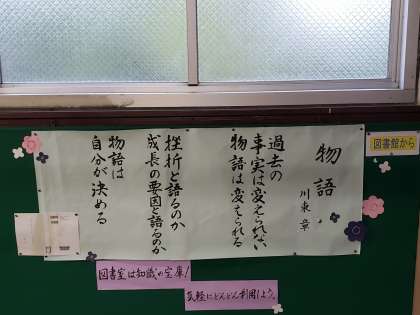 図書館から
物語
川東 章
過去の
事実は変えられない
物語は変えられる
挫折と語るのか
成長の要因と語るのか
物語は
自分が決める
図書室は知識の宝庫!
気軽にどんどん利用しよう。